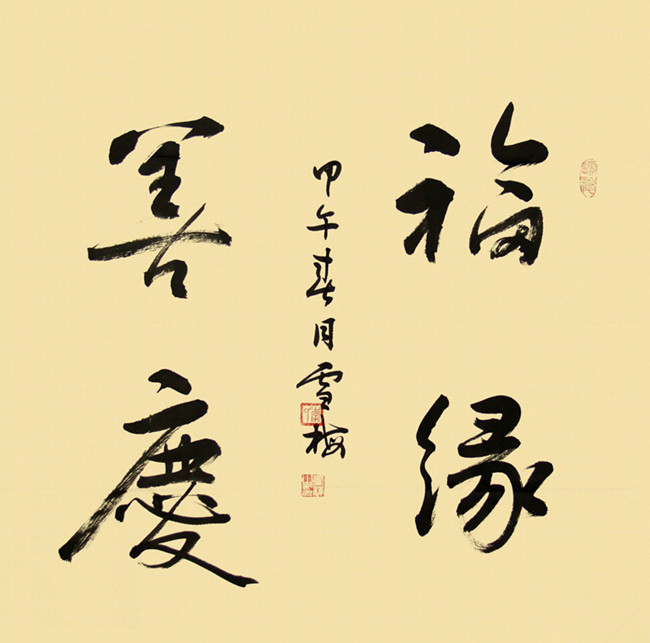 福緣
善慶
甲午春月雪梅